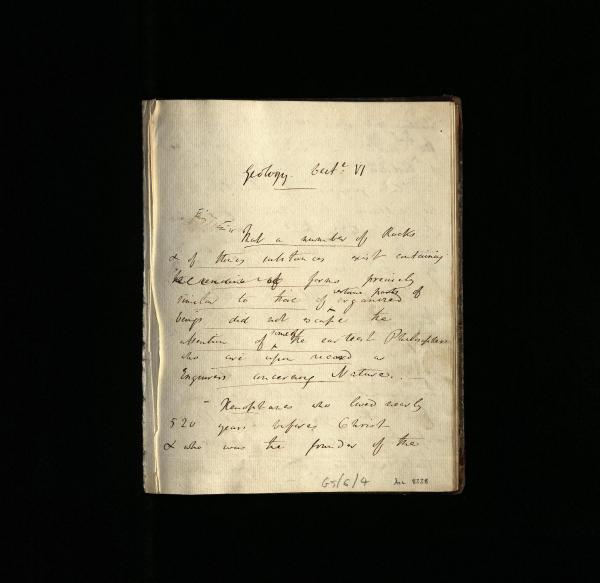 Geology. Lect.e VI
That a number of Rocks
& of these substances exist containing
forms precisely
similar to those of certain parts of organized
beings did not escape the
attention of some of the earliest Philosophers
who are upon record as
Enquirers concerning Nature. —
Xenophanes who lived nearly
520 years before Christ
& who was the founder of the
GS/6/4